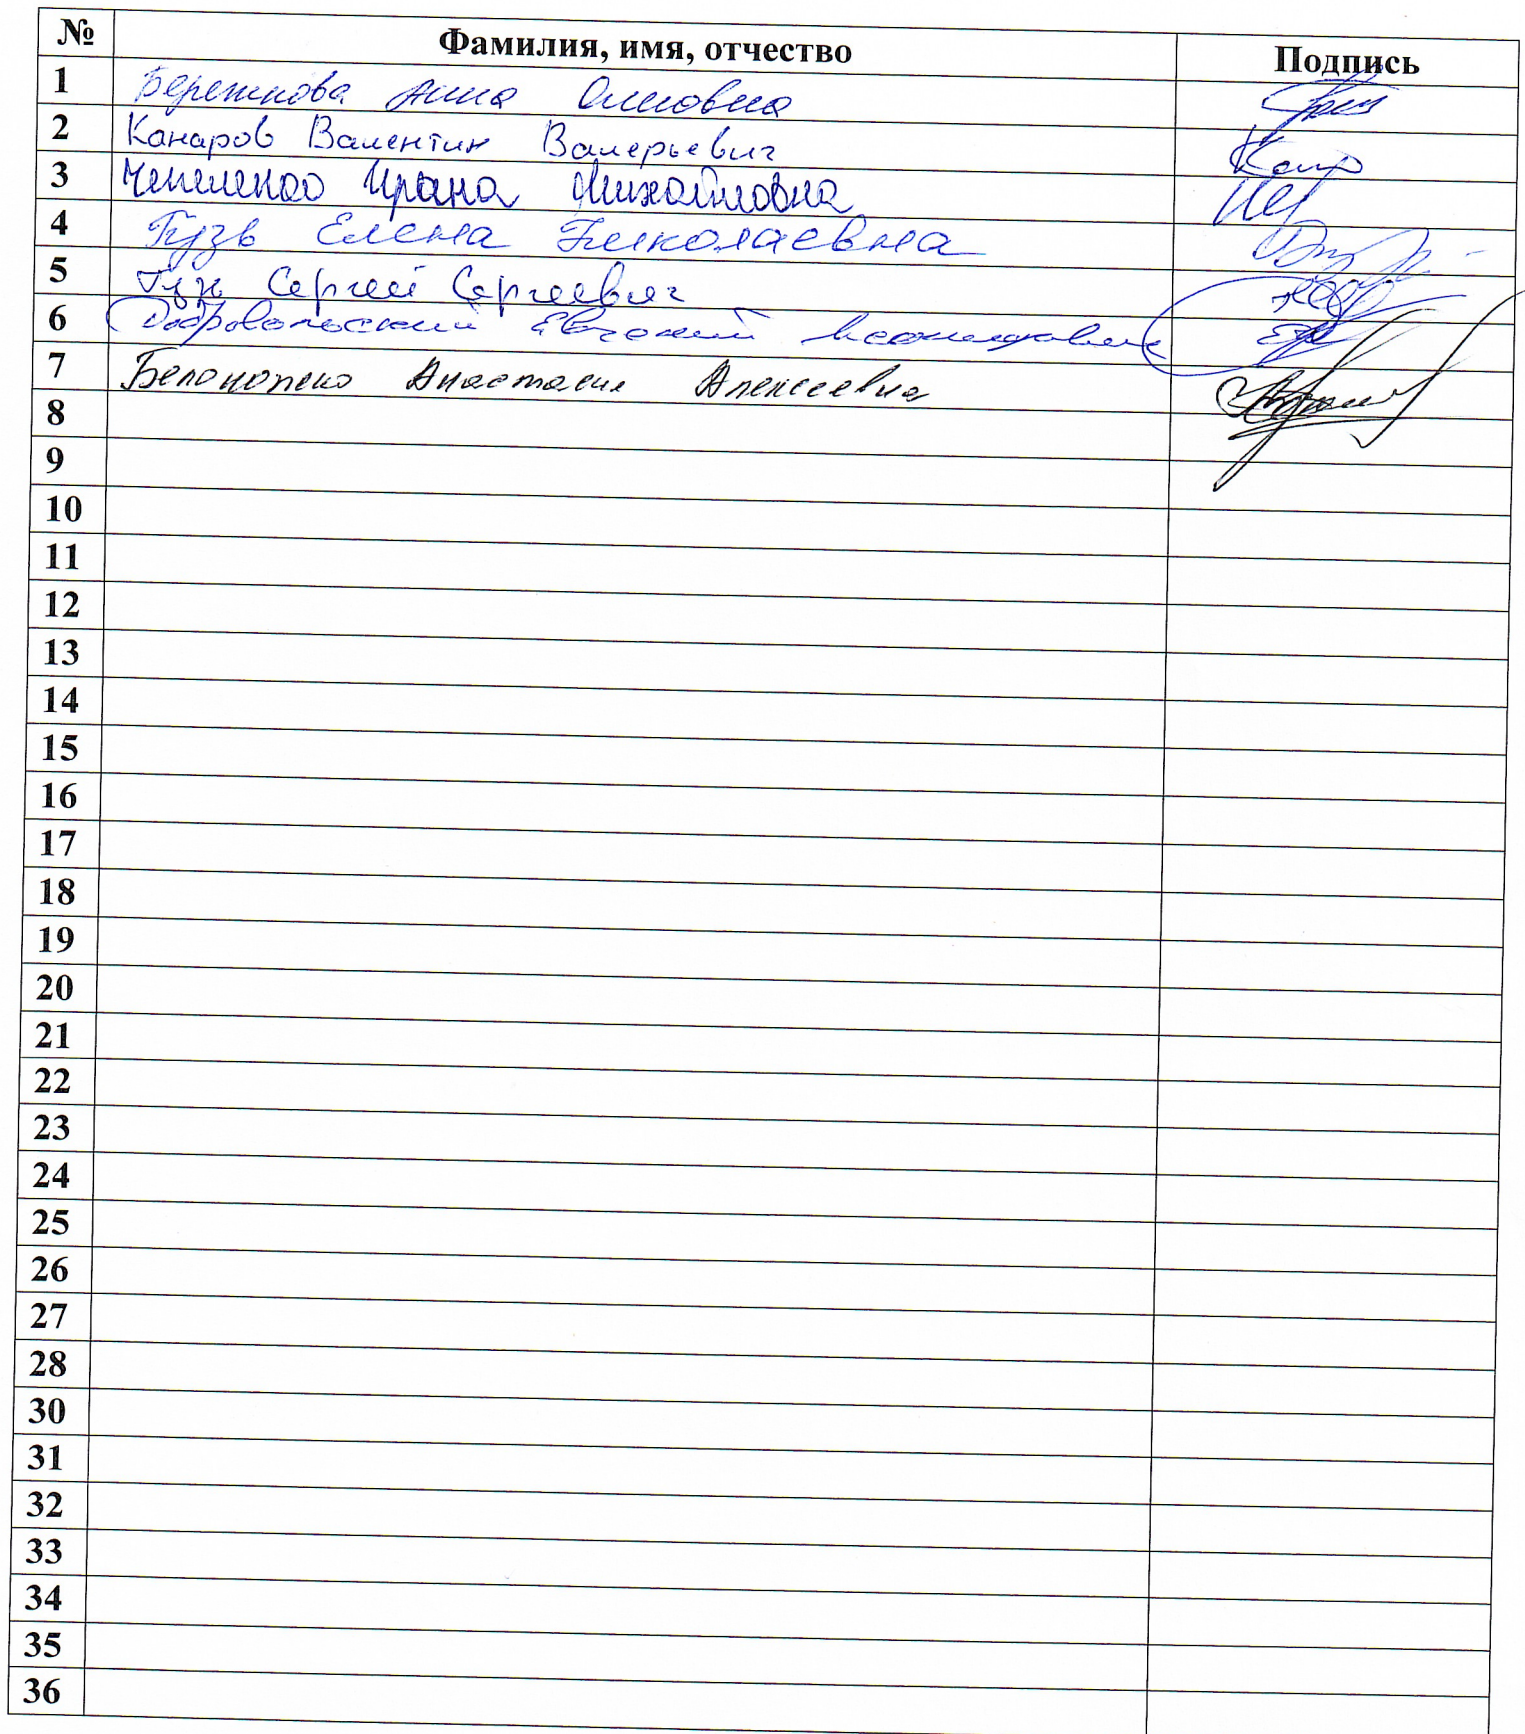 № Фамилия, имя, отчество Подпись
1 Бережнова Анна
2 Канаров Валентин Валерьевич
3 Ирина Михайловна
4 Гузь Елена Николаевна
5 Сергей Сергеевич
6 Добровольский Евгений
7 Анастасия Алексеевна
8
9
10
11
12
13
14
15
16
17
18
19
20
21
22
23
24
25
26
27
28
30
31
32
33
34
35
36